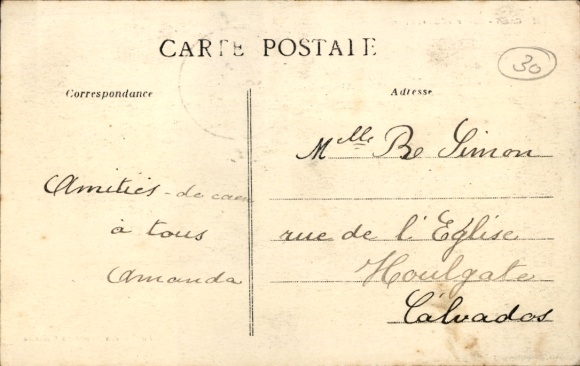 CARTE POSTALE
30
Correspondance
Adresse
Melle Be Simon
Amitiés de caen
à tous
Amanda
rue de l'Eglise
Houlgate
Calvados